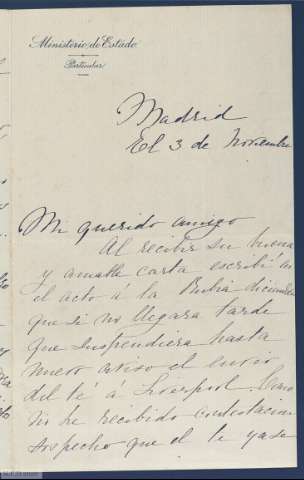 Ministerio de Estado
Particular
Madrid
El 3 de Noviembre
Mi querido amigo
Al recibir su buena
y amable carta escribí en
el acto á la diciendo
que si no llegara tarde
que suspendiera hasta
nuevo aviso el envio
del té á Liverpool. Como
no he recibido contestacion
sospecho que el te ya se